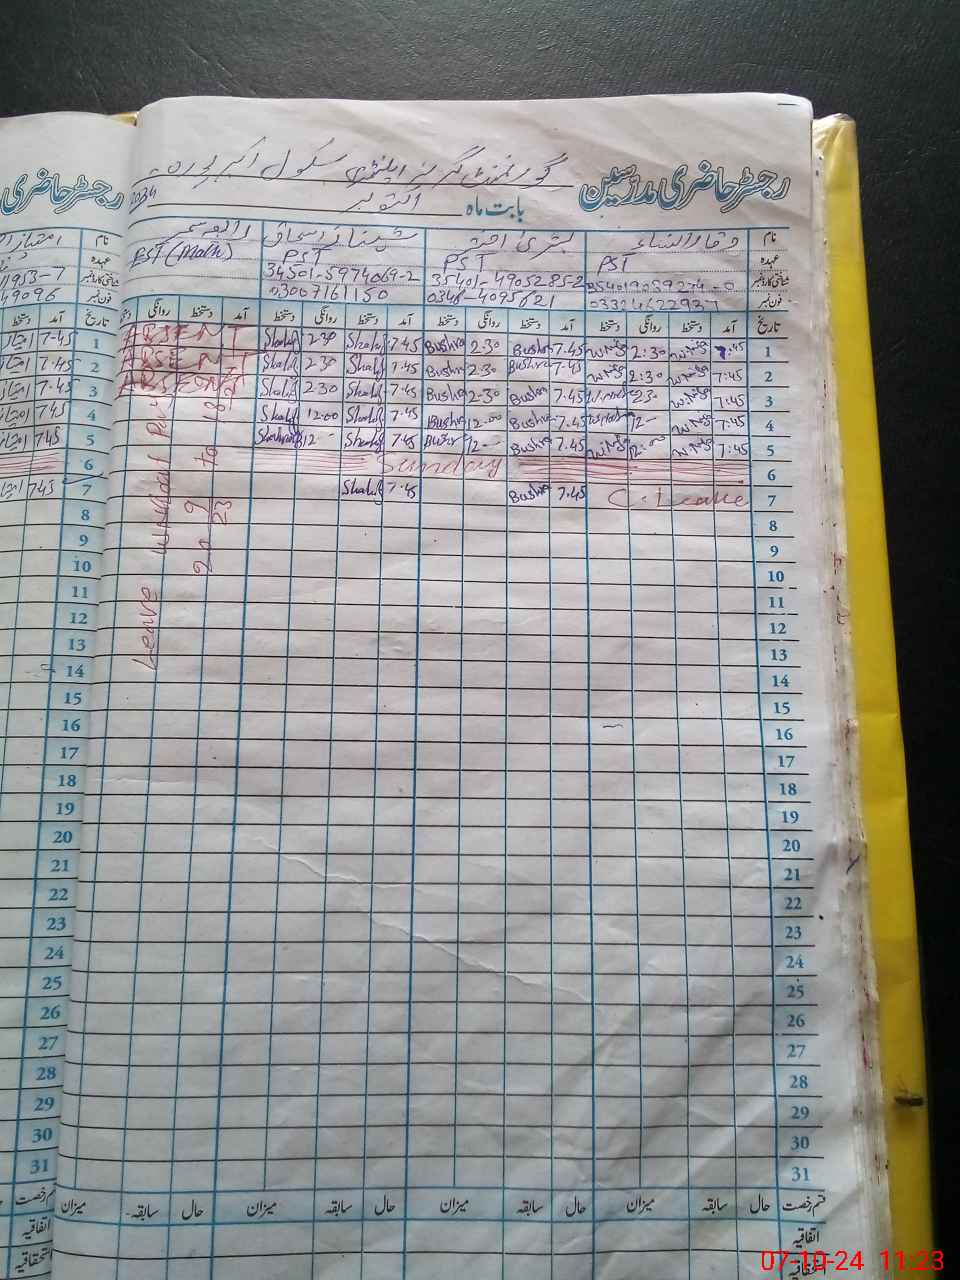 گورنمنٹ گرلز ایلیمنٹری سکول اکبر پورہ
رجسٹر حاضری مدرسین
بابت ماہ اکتوبر
نام وقار النساء بشریٰ اختر شہناز اسحاق رابعہ سمیر
عہدہ PST PST PST EST (Math)
شناختی کارڈ نمبر 35401-4905285-2 34501-5974069-2
فون نمبر 03324622937 0348-4095621 03007161150
تاریخ آمد دستخط روانگی دستخط آمد دستخط روانگی دستخط آمد دستخط روانگی دستخط آمد دستخط روانگی دستخط
1 7:45 2:30 7.45 Bushra 2.30 Bushra 7.45 2.30 ABSENT
2 7:45 2:30 7.45 Bushra 2.30 Bushra 7.45 2.30 ABSENT
3 7:45 7.45 Bushra 2.30 Bushra 7.45 2.30 ABSENT
4 7:45 12- 7.45 Bushra 12.00 Bushra 7.45 12.00
5 7:45 12:00 7.45 Bushra 12- 7.45 12-
6 Sunday
7 C. Leave 7.45 Bushra 7.45
Leave without Pay
20 9 23 to 18
8
9
10
11
12
13
14
15
16
17
18
19
20
21
22
23
24
25
26
27
28
29
30
31
قسم رخصت حال سابقہ میزان حال سابقہ میزان حال سابقہ میزان حال سابقہ میزان
اتفاقیہ
استحقاقیہ
رجسٹر حاضری
نام
عہدہ
شناختی کارڈ نمبر 1953-7
فون نمبر 49096
تاریخ آمد دستخط
1 7-45
2 7.45
3 7.45
4 7.45
5 7.45
6
7 7.45
8
9
10
11
12
13
14
15
16
17
18
19
20
21
22
23
24
25
26
27
28
29
30
31
قسم رخصت
اتفاقیہ
استحقاقیہ
07-10-24 11:23